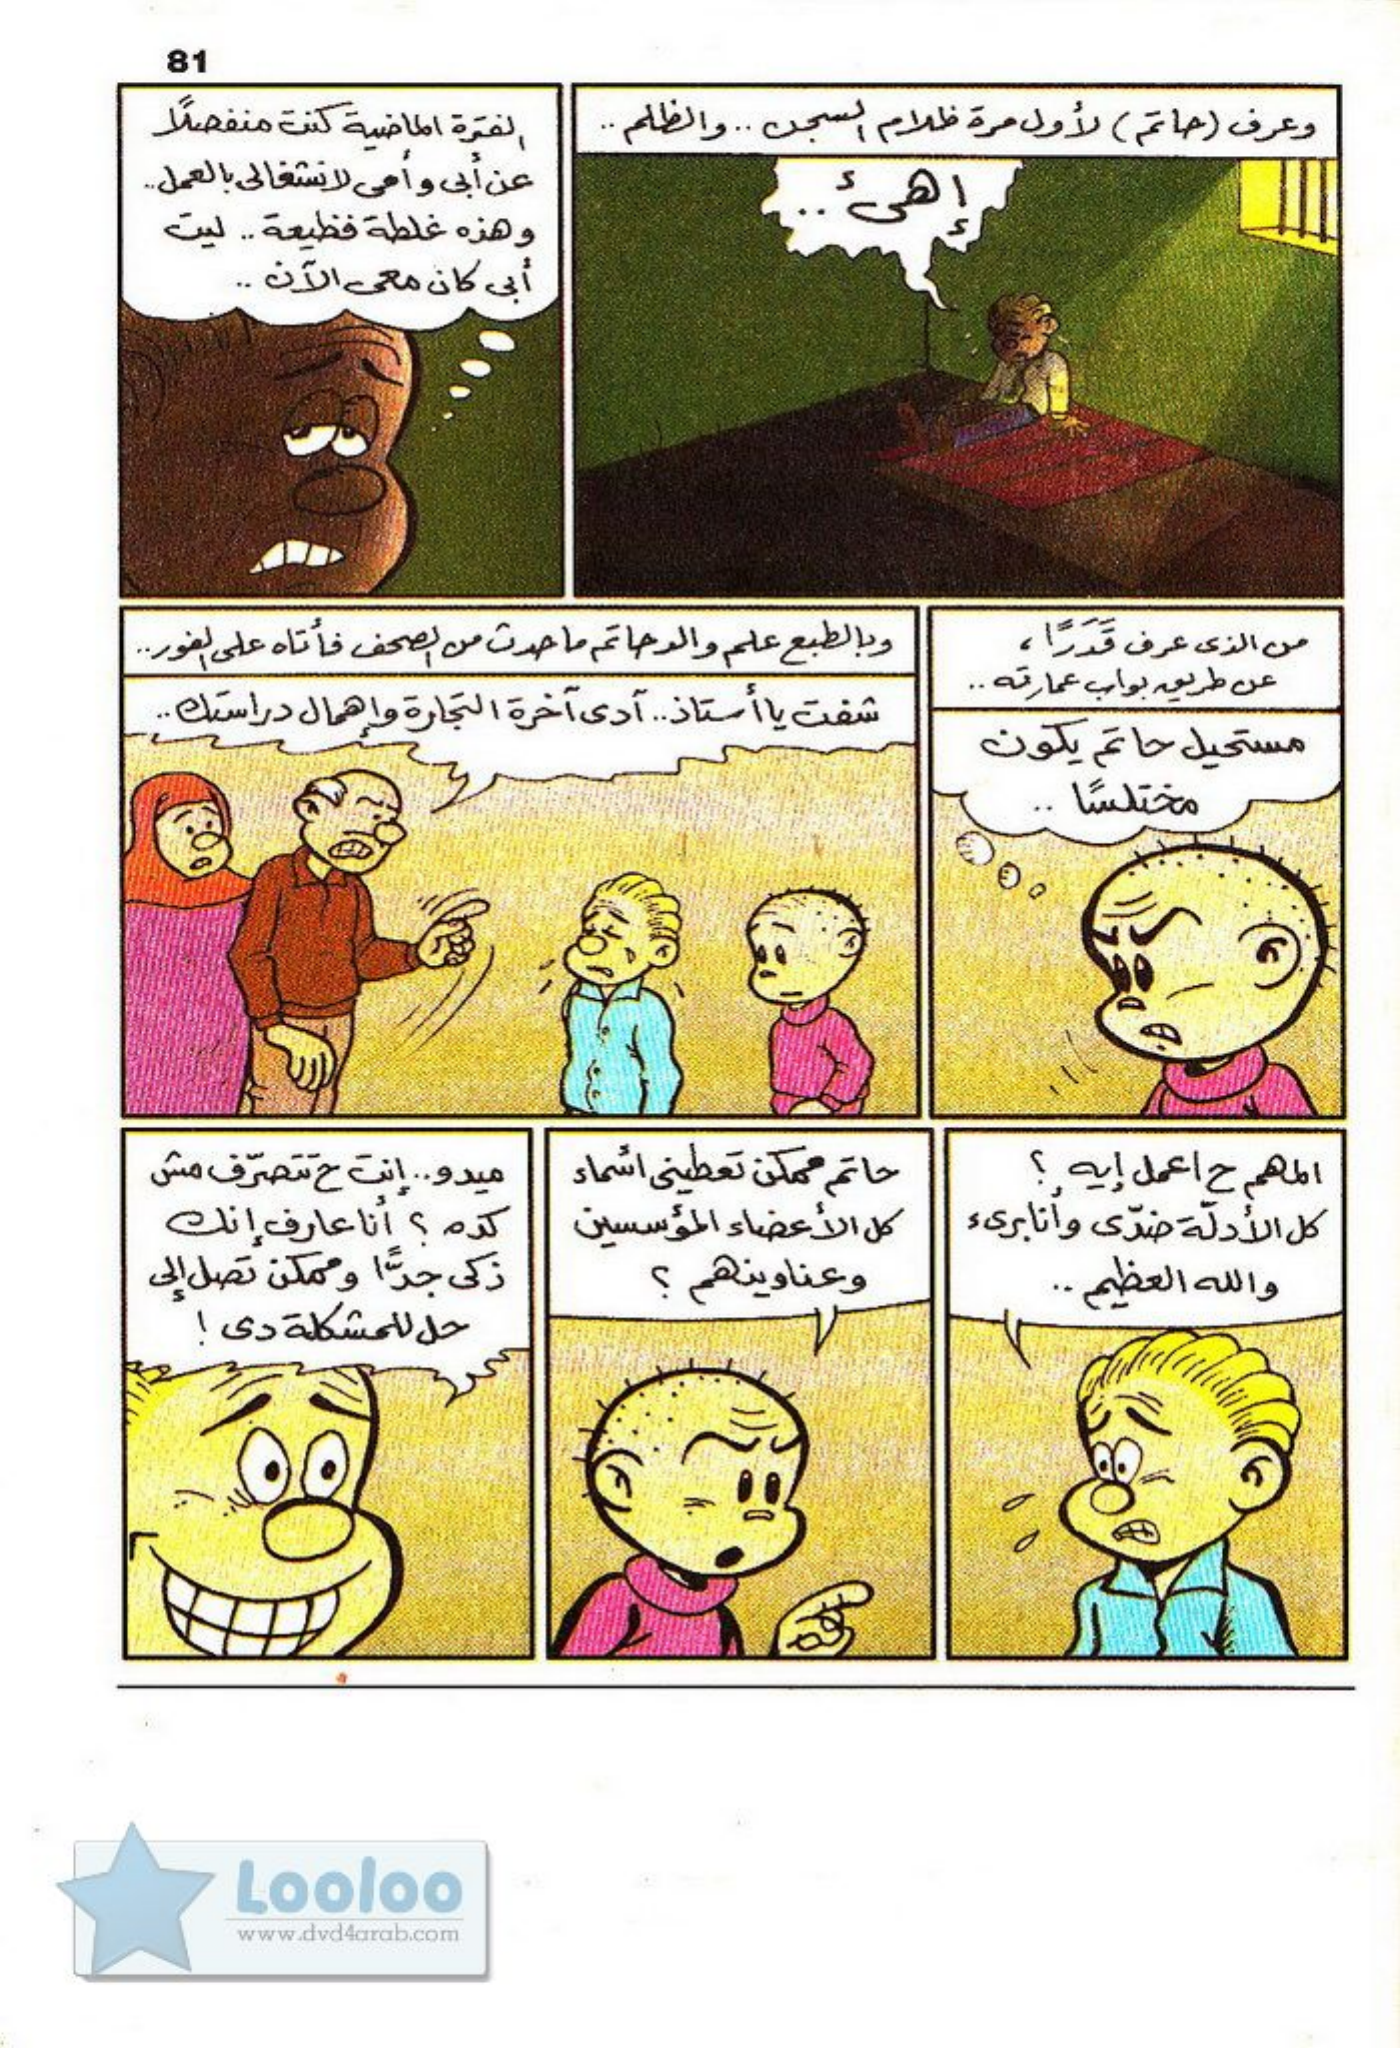 81
وعرف (حاتم) لأول مرة ظلام السجن .. والظلم ..
إهئ ..
الفترة الماضية كنت منفصلًا
عن أبى وأمى لانشغالى بالعمل..
وهذه غلطة فظيعة .. ليت
أبى كان معى الآن ..
من الذى عرف قَدَرًا ،
عن طريق بواب عمارته ..
مستحيل حاتم يكون
مختلسًا ..
وبالطبع علم والد حاتم ما حدث من الصحف فأتاه على الفور..
شفت يا أستاذ.. آدى آخرة التجارة وإهمال دراستك..
المهم ح اعمل إيه ؟
كل الأدلّة ضدّى وأنا برىء
والله العظيم ..
حاتم ممكن تعطينى أسماء
كل الأعضاء المؤسسين
وعناوينهم ؟
ميدو.. إنت ح تتصرّف مش
كده ؟ أنا عارف إنك
ذكى جدًّا وممكن تصل إلى
حل للمشكلة دى !
Looloo
www.dvd4arab.com